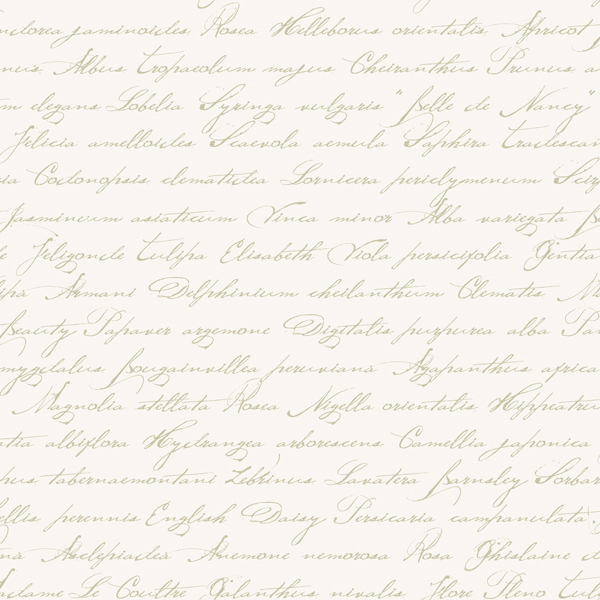 ndorea jaminoides Rosea Helleborus orientalis Apricot
nus Albus Tropaeolum majus Cheiranthus Prunus a
m elegans Lobelia Syringa vulgaris "Belle de Nancy"
Felicia amelloides Scaevola aemula Saphira tradescan
ia Codonopsis clematidea Lornicera periclymenum
Jasminum asiaticum Vinca minor Alba variegata
Feligonde Tulipa Elisabeth Viola persicifolia Gentia
ipa Armani Delphinium cheilanthum Clematis
Beauty Papaver argemone Digitalis purpurea alba
mygdalus Bougainvillea peruviana Agapanthus africa
Magnolia stellata Rosea Nigella orientalis Hippeatru
tia albiflora Hydrangea arborescens Camellia japonica
pus tabernaemontani Zebrinus Lavatera Barnsley Sorbar
ellis perennis English Daisy Persicaria campanulata
na Asclepiadea Anemone nemorosa Rosa Ghislaine d
adame Le Coultre Galanthus nivalis Flore Pleno Tul